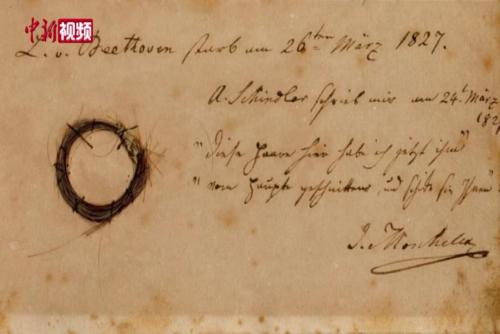 中新视频
L. v. Beethoven starb am 26ten März 1827.
A. Schindler schrieb mir am 24t. März
182
"diese Haare hier hab ich jetzt ihm
"vom Haupte geschnitten, und schicke sie Ihnen
J. Moscheles